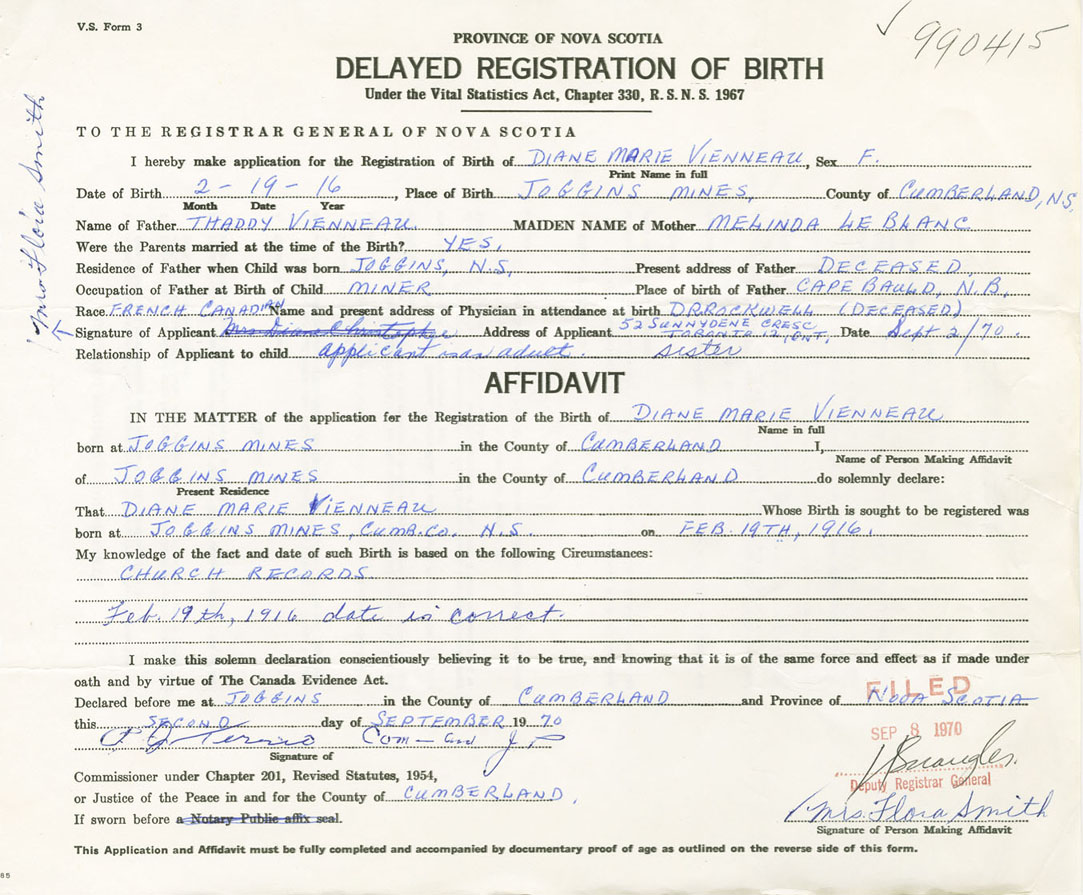 V.S. Form 3
✓ 990415
PROVINCE OF NOVA SCOTIA
DELAYED REGISTRATION OF BIRTH
Under the Vital Statistics Act, Chapter 330, R. S. N. S. 1967
TO THE REGISTRAR GENERAL OF NOVA SCOTIA
I hereby make application for the Registration of Birth of DIANE MARIE VIENNEAU, Sex F.
Print Name in full
Date of Birth 2 - 19 - 16, Place of Birth JOGGINS MINES, County of CUMBERLAND, N.S.
Month Date Year
Name of Father THADDY VIENNEAU. MAIDEN NAME of Mother MELINDA LE BLANC
Were the Parents married at the time of the Birth? YES.
Residence of Father when Child was born JOGGINS, N.S. Present address of Father DECEASED.
Occupation of Father at Birth of Child MINER Place of birth of Father CAPE BAULD, N.B.
Race FRENCH CANADIAN Name and present address of Physician in attendance at birth DR ROCKWELL (DECEASED)
Signature of Applicant Mrs Diane Christopher Address of Applicant 52 SUNNYDENE CRESC TORONTO 12, ONT. Date Sept 2/70.
Mrs Flora Smith
Relationship of Applicant to child applicant is an adult. sister
AFFIDAVIT
IN THE MATTER of the application for the Registration of the Birth of DIANE MARIE VIENNEAU
Name in full
born at JOGGINS MINES in the County of CUMBERLAND I,
Name of Person Making Affidavit
of JOGGINS MINES in the County of CUMBERLAND do solemnly declare:
Present Residence
That DIANE MARIE VIENNEAU Whose Birth is sought to be registered was
born at JOGGINS MINES, CUMB. CO. N.S. on FEB. 19TH, 1916.
My knowledge of the fact and date of such Birth is based on the following Circumstances:
CHURCH RECORDS.
Feb. 19th, 1916 date is correct.
I make this solemn declaration conscientiously believing it to be true, and knowing that it is of the same force and effect as if made under
oath and by virtue of The Canada Evidence Act.
Declared before me at JOGGINS in the County of CUMBERLAND and Province of NOVA SCOTIA
FILED
this SECOND day of SEPTEMBER 1970
SEP 8 1970
Signature of
Deputy Registrar General
Commissioner under Chapter 201, Revised Statutes, 1954,
or Justice of the Peace in and for the County of CUMBERLAND.
If sworn before a Notary Public affix seal.
Mrs. Flora Smith
Signature of Person Making Affidavit
This Application and Affidavit must be fully completed and accompanied by documentary proof of age as outlined on the reverse side of this form.